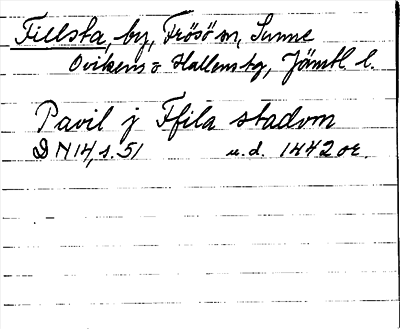 Fillsta, by, Frösö sn, Sunne
Ovikens o Hallens tg, Jämtl l.
Pavil j Ffila stadom
DN14, s. 51 u.d. 1442 or.